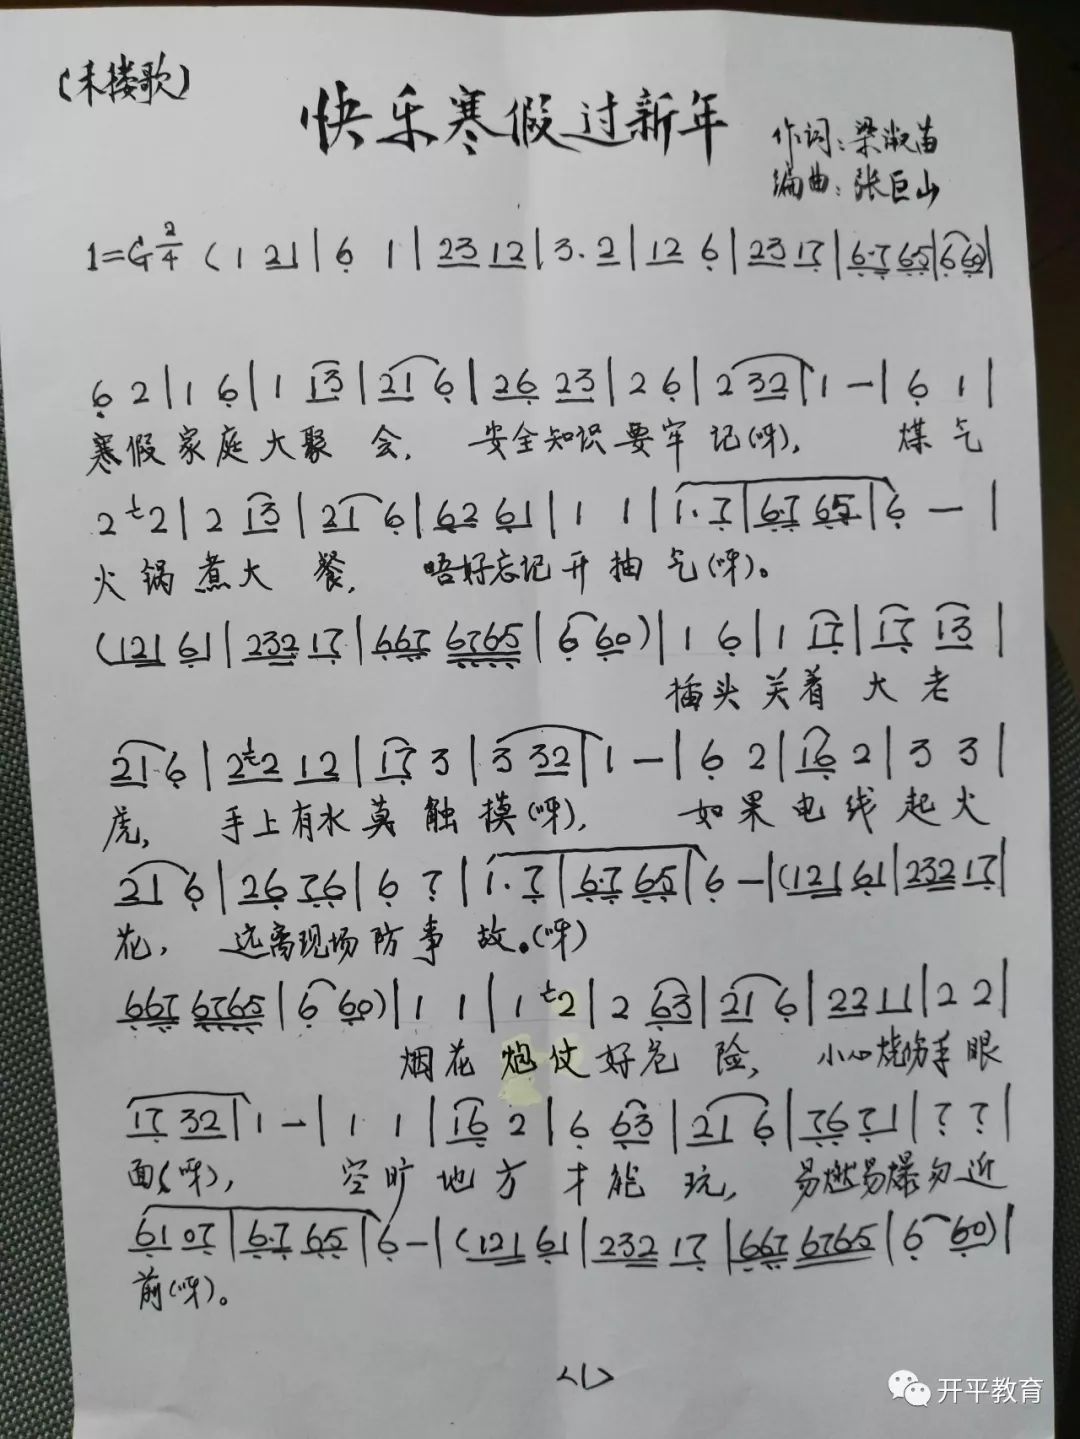 (木搂歌)
快乐寒假过新年
作词:梁淑苗
编曲:张巨山
1=G 2/4 (1 21|6 1|23 12|3·2|12 6|23 17|6·7 65|6 60|
6 2|1 6|1 13|21 6|26 23|2 6|2 32|1 —|6 1|
寒假家庭大聚 会, 安全知识要牢 记(呀), 煤气
2 t2|2 13|21 6|62 61|1 1|1·7|6·7 65|6 —|
火锅煮大 餐, 唔好忘记开抽气(呀)。
(121 61|232 17|667 6765|6 60)|1 6|1 17|17 13|
插头关着大老
21 6|2t2 12|17 3|3 32|1 —|6 2|16 2|3 3|
虎, 手上有水莫触摸(呀), 如果电线起火
21 6|26 76|6 7|1·7|6·7 65|6 —|(121 61|232 17|
花, 远离现场防事故。(呀)
667 6765|6 60)|1 1|1 t2|2 63|21 6|22 11|2 2|
烟花炮仗好危险, 小心烧伤手眼
17 32|1 —|1 1|16 2|6 63|21 6|76 71|7 7|
面(呀), 空旷地方才能玩, 易燃易爆勿近
61 07|6·7 65|6 —|(121 61|232 17|667 6765|6 60)|
前(呀)。
<1>
开平教育